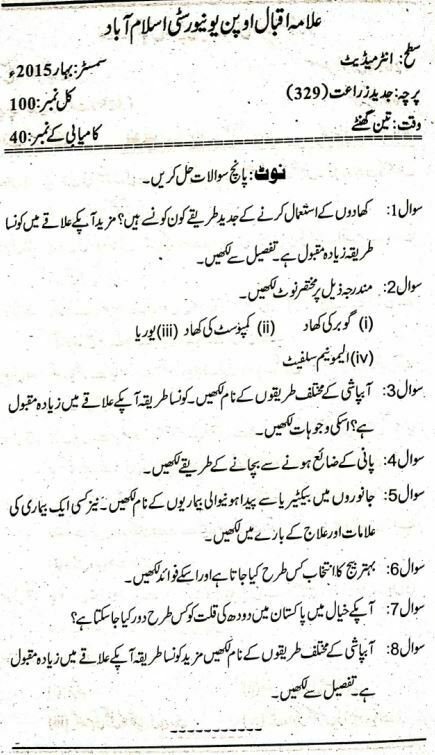 علامہ اقبال اوپن یونیورسٹی اسلام آباد
سطح: انٹرمیڈیٹ سمسٹر: بہار 2015ء
پرچہ: جدید زراعت (329) کل نمبر: 100
وقت: تین گھنٹے کامیابی کے نمبر: 40
نوٹ: پانچ سوالات حل کریں۔
سوال 1: کھادوں کے استعمال کرنے کے جدید طریقے کون کونسے ہیں؟ مزید آپکے علاقے میں کونسا
طریقہ زیادہ مقبول ہے۔ تفصیل سے لکھیں۔
سوال 2: مندرجہ ذیل پر مختصر نوٹ لکھیں۔
(i) گوبر کی کھاد (ii) کمپوسٹ کی کھاد (iii) یوریا
(iv) الیمونیم سلفیٹ
سوال 3: آبپاشی کے مختلف طریقوں کے نام لکھیں۔ کونسا طریقہ آپکے علاقے میں زیادہ مقبول
ہے؟ اسکی وجوہات لکھیں۔
سوال 4: پانی کے ضائع ہونے سے بچانے کے طریقے لکھیں۔
سوال 5: جانوروں میں بیکٹیریا سے پیدا ہونیوالی بیماریوں کے نام لکھیں۔ نیز کسی ایک بیماری کی
علامات اور علاج کے بارے میں لکھیں۔
سوال 6: بہتر بیج کا انتخاب کس طرح کیا جاتا ہے اور اسکے فوائد لکھیں۔
سوال 7: آپکے خیال میں پاکستان میں دودھ کی قلت کو کس طرح دور کیا جا سکتا ہے؟
سوال 8: آبپاشی کے مختلف طریقوں کے نام لکھیں مزید کونسا طریقہ آپکے علاقے میں زیادہ مقبول
ہے۔ تفصیل سے لکھیں۔